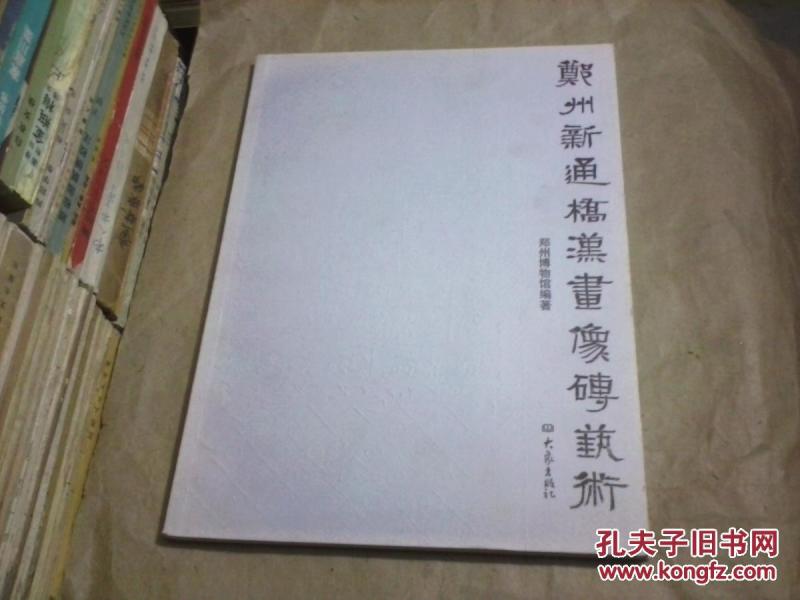 鄭州新通橋漢畫像磚藝術
郑州博物馆编著
大象出版社
孔夫子旧书网
www.kongfz.com